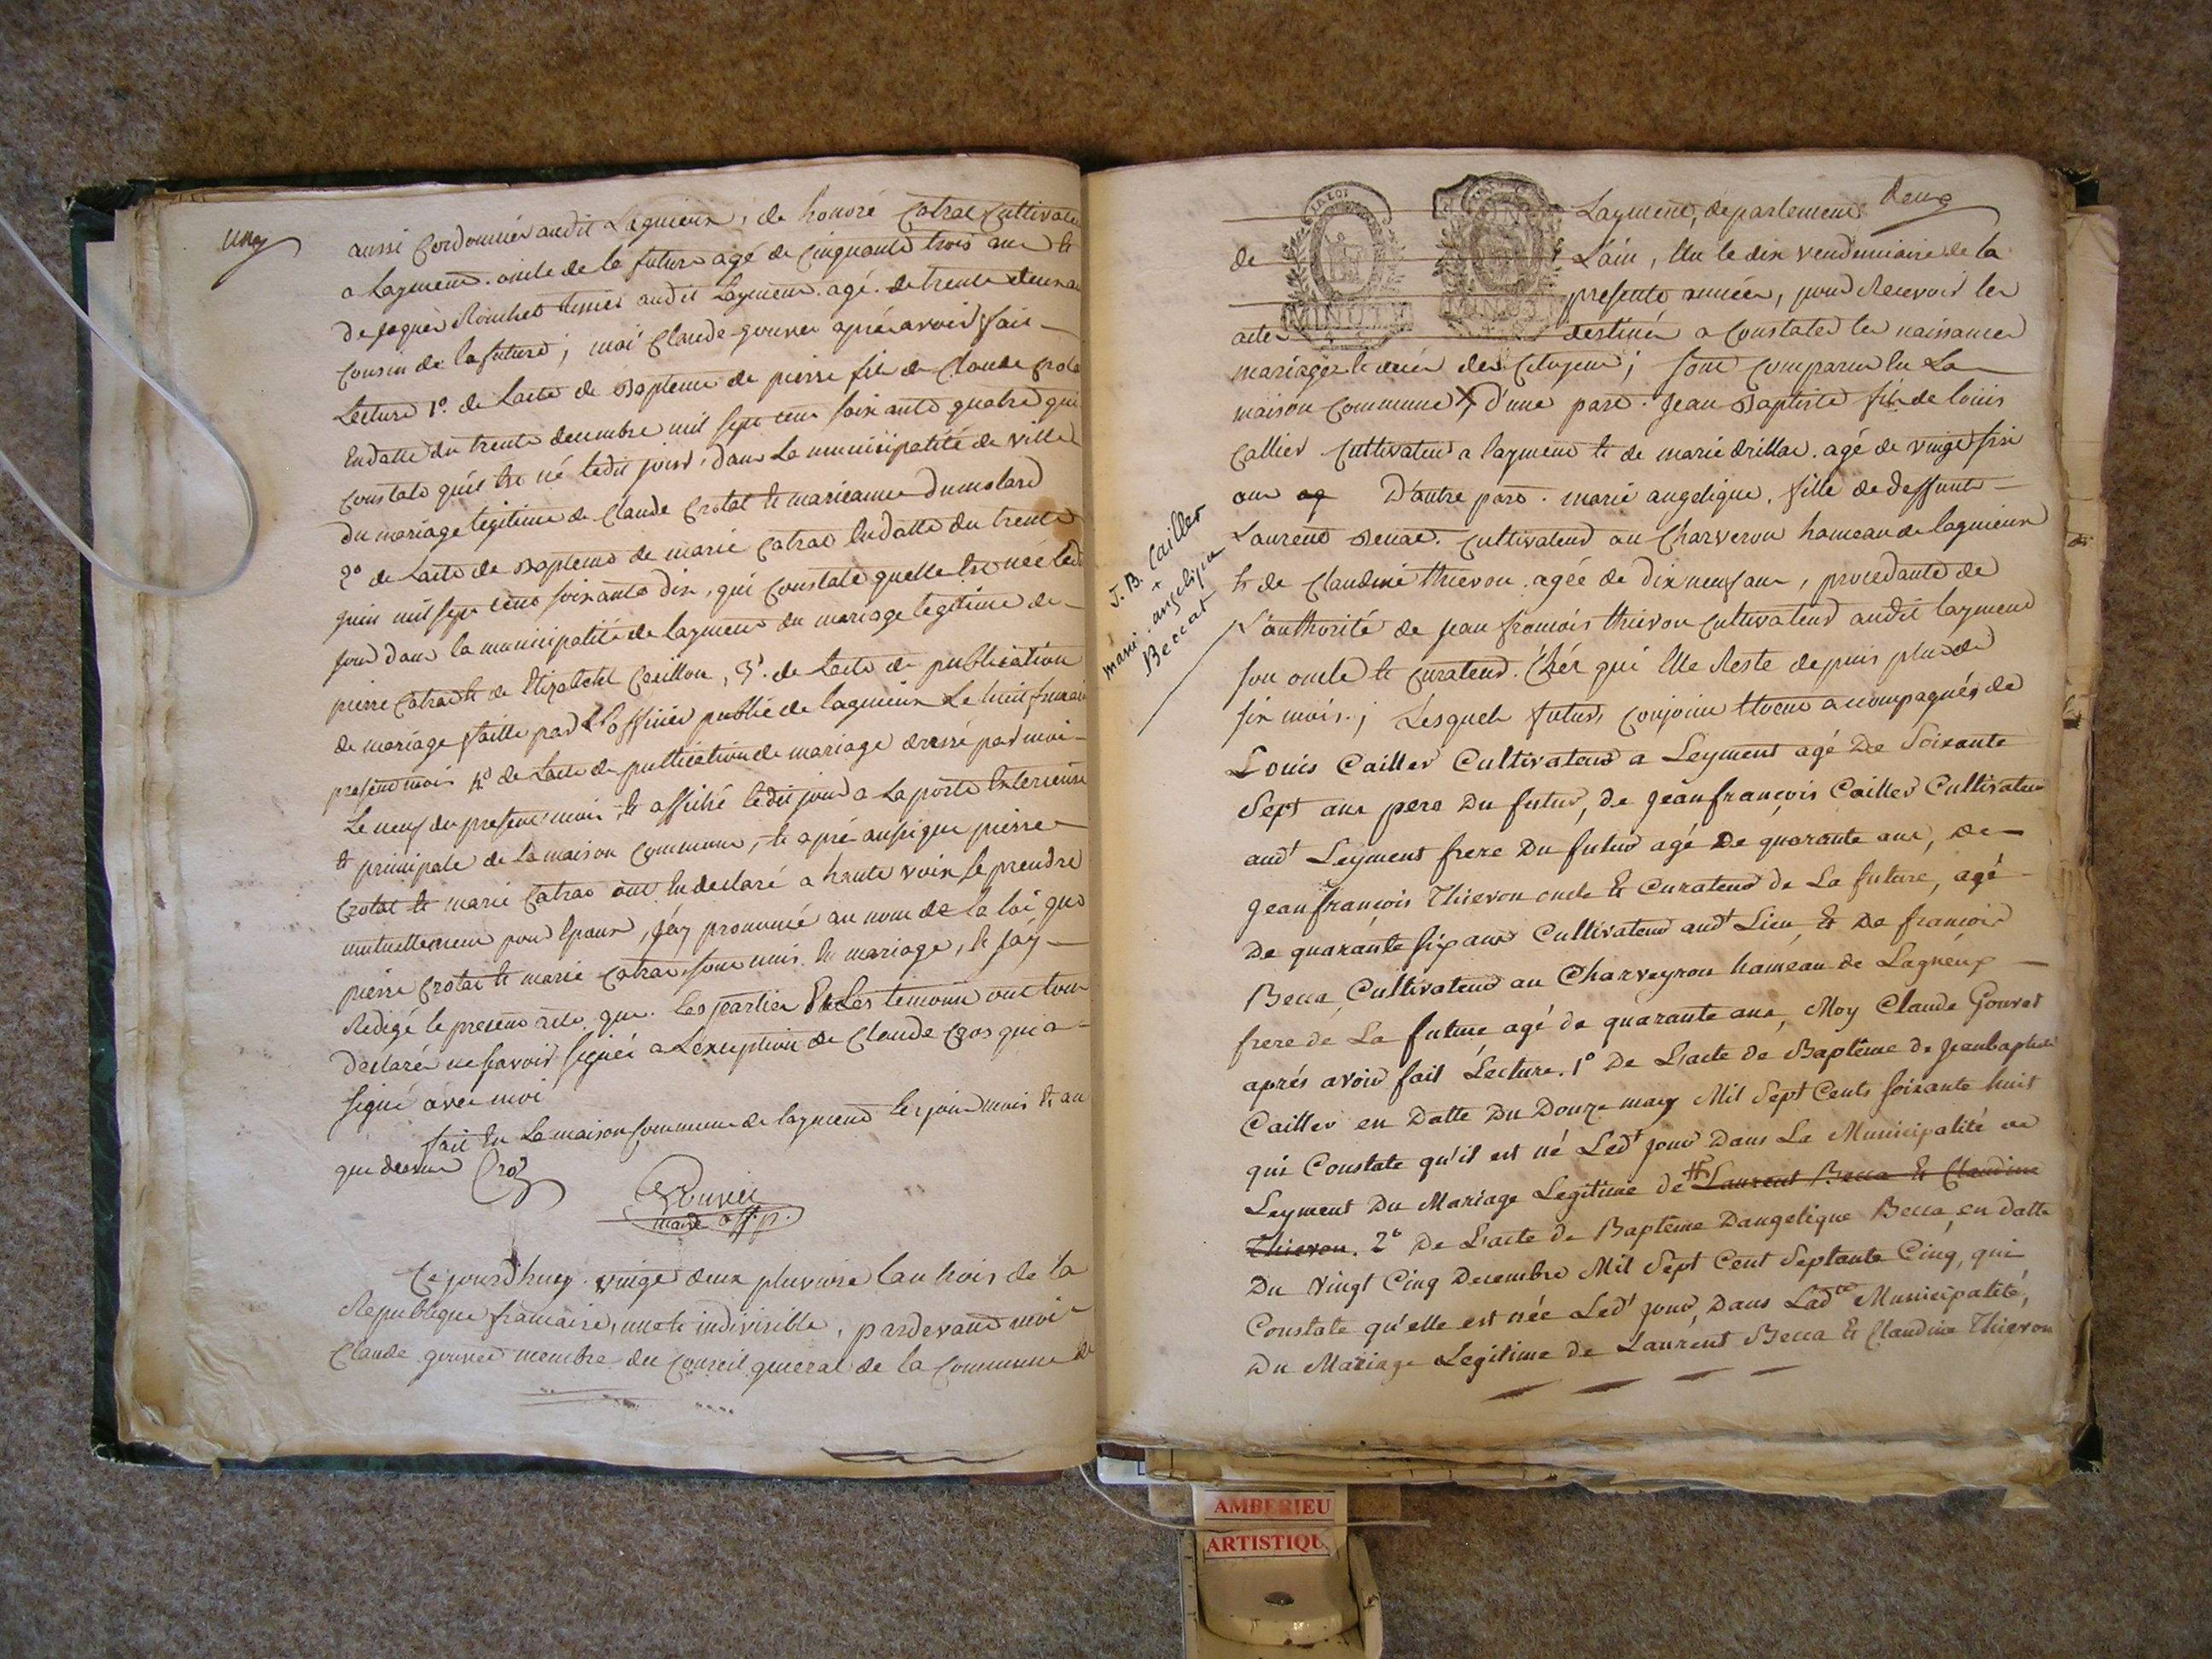 ung
aussi Cordonnier audit Lagnieux, de honoré Catrac Cultivateu
a Laymend. oncle de la future agé de cinquante trois ans et
de jaques Rouchet aussi audit Laymend. agé de trente deux an
cousin de la future; moi Claude gouvet aprés avoir fait
Lecture 1º. de lacte de Bapteme de pierre fils de Claude Crota
En datte du trente decembre mil sept cent soixante quatre qui
constate qu'il est né ledit jour, dans la municipalité de ville
du mariage legitime de Claude Crotat et marieanne Dumolard
2º de Lacte de Bapteme de marie Catrac En datte du trente
juin mil sept cent soixante dix, qui constate quelle est née led
jour dans la municipalité de Laymend du mariage legitime de
pierre Catrac et de Elizabeth Cavillon, 3º. de Lacte de publication
de mariage faitte par L'officier public de lagnieux Le huit frimai
present mois 4º de Lacte de publication de mariage dressé par moi
Le neuf du present mois et affiché ledit jour a La porte Exterieure
et principale de La maison commune, et aprés aussi que pierre
Crotat et marie Catrac ont Eu declaré a haute voix se prendre
mutuellement pour Epoux, j'ay prononcé au nom de la loi que
pierre Crotat et marie Catrac sont unis En mariage, et jay
Redigé le present acte que Les parties Et Les temoins ont tous
declaré ne scavoir signer a L'exception de Claude Cros qui a
signé avec moi
fait En La maison Commune de laymend Les jour mois et an
que dessus Cros
Gouvet
maire off. p.
Cejourdhuey vingt deux pluviose l'an trois de la
Republique francaise, une et indivisible, pardevand moi
Claude gouvet membre du Conseil general de la Commune de
deux
Laymend, departement
de Lain, Elu le dix vendemiaire de la
presente année, pour Recevoir les
actes destinés a constater les naissances
mariages et deces des Citoyens; sont comparus En La
maison Commune X d'une part. Jean Baptiste fils de louis
Callier Cultivateur a laymend et de marie drillac. agé de vingt six
ans ag D'autre part. marie angelique. fille de deffunt
Laurend Becat. Cultivateur au Charveron hameau de lagnieux
et de Claudine thievon. agée de dix neuf ans, procedante de
L'authorité de jean francois thievon cultivateur audit laymend
son oncle et curateur. Chér qui Elle Reste depuis plus de
six mois.; Lesquels futurs conjoins Etoient accompagnés de
Louis Cailler Cultivateur a Leyment agé De Soixante
Sept ans pere Du futur, de jean françois Cailler Cultivateur
audt Leyment frere Du futur agé De quarante ans, de
jean françois Thievon oncle Et Curateur de La future, agé
De quarante six ans Cultivateur audt Lieu, Et De françois
Becca, Cultivateur au Charveyron hameau de Lagneux
frere de La future agé de quarante ans, Moy Claude Gouvet
aprés avoir fait Lecture. 1º De L'acte de Baptême de Jeanbaptiste
Cailler en Datte Du Douze may Mil Sept Cents soixante huit
qui Constate qu'il est né Ledt jour Dans La Municipalité de
Leyment Du Mariage Legitime de # Laurent Becca Et Claudine
Thievon. 2º De L'acte de Baptême Dangelique Becca, en datte
Du Vingt Cinq Decembre Mil Sept Cent Septante Cinq, qui
Constate qu'elle est née Ledt jour, Dans Ladte Municipalité,
Du Mariage Legitime de Laurent Becca Et Claudine Thievon
J. B. Cailler
+
marie. angelique
Beccat
LA LOI
MINUTE
MINUTE
AMBERIEU
ARTISTIQU